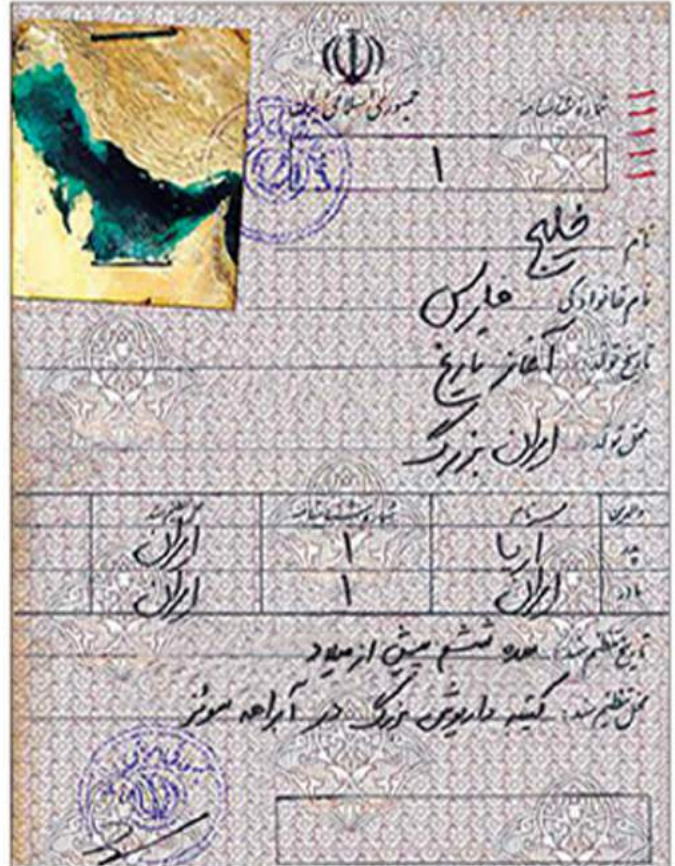 جمهوری اسلامی ایران
شماره شناسنامه
۱۱۱۱۱
۱
نام خلیج
نام خانوادگی فارس
تاریخ تولد: آغاز تاریخ
محل تولد: ایران بزرگ
والدین نام شماره شناسنامه
پدر آریا ۱ ایران
مادر ایران ۱ ایران
تاریخ تنظیم سند: سده ششم پیش از میلاد
محل تنظیم سند: کتیبه داریوش بزرگ در آبراهه سوئز